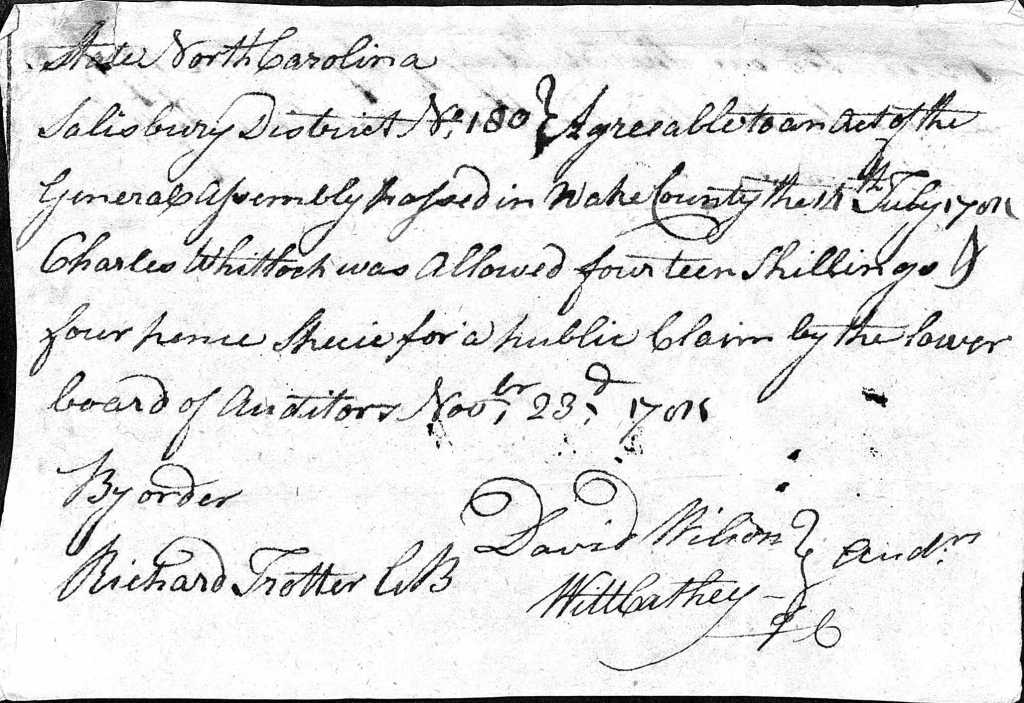 State North Carolina
Salisbury District No. 180 } Agreeable to an Act of the
General Assembly passed in Wake County the 14th July 1781
Charles Whitlock was Allowed fourteen Shillings &
four pence Specie for a public Claim by the lower
board of Auditors Novbr, 23d, 1781
By order
Richard Trotter CB
David Wilson } Audrs
Will Cathey